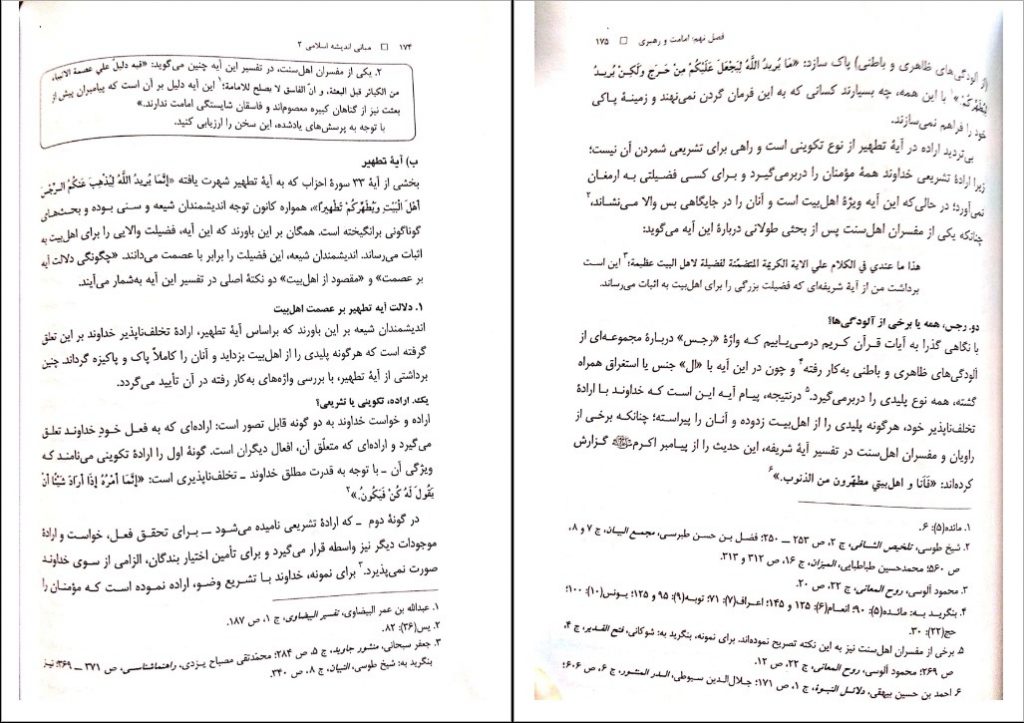 ۱۷۴ □ مبانی اندیشه اسلامی ۲
۲. یکی از مفسران اهل‌سنت، در تفسیر این آیه چنین می‌گوید: «فیه دلیلٌ علي عصمة الانبیاء
من الکبائر قبل البعثة، و انّ الفاسق لا یصلح للامامة؛۱ این آیه دلیل بر آن است که پیامبران پیش از
بعثت نیز از گناهان کبیره معصوم‌اند و فاسقان شایستگی امامت ندارند.»
با توجه به پرسش‌های یادشده، این سخن را ارزیابی کنید.
ب) آیهٔ تطهیر
بخشی از آیهٔ ۳۳ سورهٔ احزاب که به آیهٔ تطهیر شهرت یافته «إِنَّمَا يُرِيدُ اللَّهُ لِيُذْهِبَ عَنكُمُ الرِّجْسَ
أَهْلَ الْبَيْتِ وَيُطَهِّرَكُمْ تَطْهِيرًا»، همواره کانون توجه اندیشمندان شیعه و سنی بوده و بحث‌های
گوناگونی برانگیخته است. همگان بر این باورند که این آیه، فضیلت والایی را برای اهل‌بیت به
اثبات می‌رساند. اندیشمندان شیعه، این فضیلت را برابر با عصمت می‌دانند. «چگونگی دلالت آیه
بر عصمت» و «مقصود از اهل‌بیت» دو نکتهٔ اصلی در تفسیر این آیه به‌شمار می‌آیند.
۱. دلالت آیه تطهیر بر عصمت اهل‌بیت
اندیشمندان شیعه بر این باورند که براساس آیهٔ تطهیر، ارادهٔ تخلف‌ناپذیر خداوند بر این تعلق
گرفته است که هرگونه پلیدی را از اهل‌بیت بزداید و آنان را کاملاً پاک و پاکیزه گرداند. چنین
برداشتی از آیهٔ تطهیر، با بررسی واژه‌های به‌کار رفته در آن تأیید می‌گردد.
یک. اراده، تکوینی یا تشریعی؟
اراده و خواست خداوند به دو گونه قابل تصور است: اراده‌ای که به فعل خودِ خداوند تعلق
می‌گیرد و اراده‌ای که متعلَّق آن، افعال دیگران است. گونهٔ اول را ارادهٔ تکوینی می‌نامند که
ویژگی آن ـ با توجه به قدرت مطلق خداوند ـ تخلف‌ناپذیری است: «إِنَّمَا أَمْرُهُ إِذَا أَرَادَ شَيْئًا أَنْ
يَقُولَ لَهُ كُنْ فَيَكُونُ.»۲
در گونهٔ دوم ـ که ارادهٔ تشریعی نامیده می‌شود ـ برای تحقق فعل، خواست و ارادهٔ
موجودات دیگر نیز واسطه قرار می‌گیرد و برای تأمین اختیار بندگان، الزامی از سوی خداوند
صورت نمی‌پذیرد.۳ برای نمونه، خداوند با تشریع وضو، اراده نموده است که مؤمنان را
۱. عبدالله بن عمر البیضاوی، تفسیر البیضاوی، ج ۱، ص ۱۸۷.
۲. یس(۳۶): ۸۲.
۳. جعفر سبحانی، منشور جاوید، ج ۵، ص ۲۸۴؛ محمدتقی مصباح یزدی، راهنماشناسی، ص ۳۷۱ ـ ۳۶۹؛ نیز
بنگرید به: شیخ طوسی، التبیان، ج ۸، ص ۳۴۰.
فصل نهم: امامت و رهبری □ ۱۷۵
(از آلودگی‌های ظاهری و باطنی) پاک سازد: «مَا يُرِيدُ اللَّهُ لِيَجْعَلَ عَلَيْكُم مِنْ حَرَجٍ وَلَكِنْ يُرِيدُ
لِيُطَهِّرَكُمْ»۱ با این همه، چه بسیارند کسانی که به این فرمان گردن نمی‌نهند و زمینهٔ پاکی
خود را فراهم نمی‌سازند.
بی‌تردید اراده در آیهٔ تطهیر از نوع تکوینی است و راهی برای تشریعی شمردن آن نیست؛
زیرا ارادهٔ تشریعی خداوند همهٔ مؤمنان را دربرمی‌گیرد و برای کسی فضیلتی به ارمغان
نمی‌آورد؛ در حالی‌که این آیه ویژهٔ اهل‌بیت است و آنان را در جایگاهی بس والا می‌نشاند،۲
چنانکه یکی از مفسران اهل‌سنت پس از بحثی طولانی دربارهٔ این آیه می‌گوید:
هذا ما عندي في الکلام علي الایة الکریمة المتضمّنة لفضیلة لاهل البیت عظیمة؛۳ این است
برداشت من از آیهٔ شریفه‌ای که فضیلت بزرگی را برای اهل‌بیت به اثبات می‌رساند.
دو. رجس، همه یا برخی از آلودگی‌ها؟
با نگاهی گذرا به آیات قرآن کریم درمی‌یابیم که واژهٔ «رجس» دربارهٔ مجموعه‌ای از
آلودگی‌های ظاهری و باطنی به‌کار رفته۴ و چون در این آیه با «ال» جنس یا استغراق همراه
گشته، همه نوع پلیدی را دربرمی‌گیرد.۵ درنتیجه، پیام آیه این است که خداوند با ارادهٔ
تخلف‌ناپذیر خود، هرگونه پلیدی را از اهل‌بیت زدوده و آنان را پیراسته؛ چنانکه برخی از
راویان و مفسران اهل‌سنت در تفسیر آیهٔ شریفه، این حدیث را از پیامبر اکرمﷺ گزارش
کرده‌اند: «فَأَنا و اهل‌بیتي مطهّرون من الذنوب.»۶
۱. مائده(۵): ۶.
۲. شیخ طوسی، تلخیص الشافی، ج ۲، ص ۲۵۳ ـ ۲۵۰؛ فضل بن حسن طبرسی، مجمع البیان، ج ۷ و ۸،
ص ۵۶۰؛ محمدحسین طباطبایی، المیزان، ج ۱۶، ص ۳۱۲ و ۳۱۳.
۳. محمود آلوسی، روح المعانی، ج ۲۲، ص ۲۰.
۴. بنگرید به: مائده(۵): ۹۰؛ انعام(۶): ۱۲۵ و ۱۴۵؛ اعراف(۷): ۷۱؛ توبه(۹): ۹۵ و ۱۲۵؛ یونس(۱۰): ۱۰۰؛
حج(۲۲): ۳۰.
۵. برخی از مفسران اهل‌سنت نیز به این نکته تصریح نموده‌اند. برای نمونه، بنگرید به: شوکانی، فتح القدیر، ج ۴،
ص ۲۶۹؛ محمود آلوسی، روح المعانی، ج ۲۲، ص ۱۲.
۶. احمد بن حسین بیهقی، دلائل النبوة، ج ۱، ص ۱۷۱؛ جلال‌الدین سیوطی، الدر المنثور، ج ۶، ص ۶۰۶؛